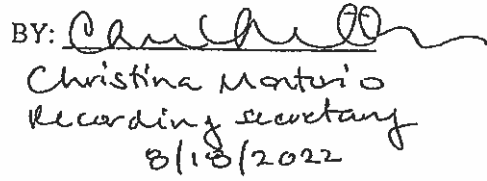 BY:
Christina Montorio
Recording secretary
8/18/2022